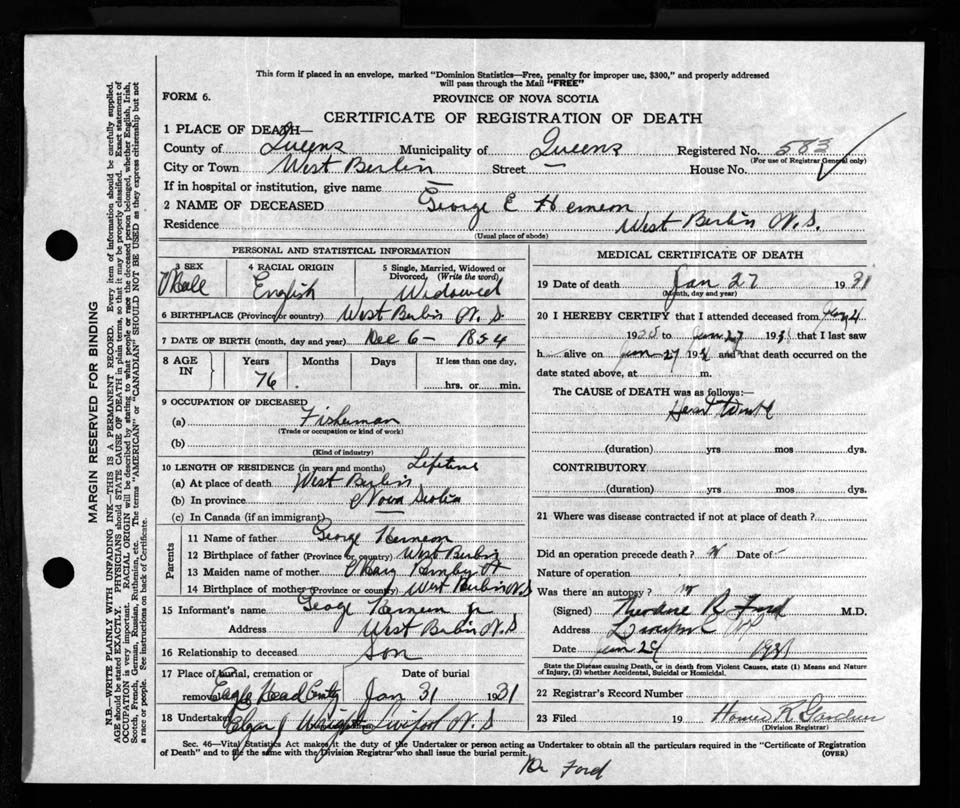 This form if placed in an envelope, marked "Dominion Statistics—Free, penalty for improper use, $300," and properly addressed
will pass through the Mail "FREE"
FORM 6.
PROVINCE OF NOVA SCOTIA
CERTIFICATE OF REGISTRATION OF DEATH
1 PLACE OF DEATH—
County of Queens Municipality of Queens Registered No. 583
(For use of Registrar General only)
City or Town West Berlin Street — House No.
If in hospital or institution, give name —
2 NAME OF DECEASED George E
Residence West Berlin N.S.
(Usual place of abode)
PERSONAL AND STATISTICAL INFORMATION
3 SEX
Male
4 RACIAL ORIGIN
English
5 Single, Married, Widowed or
Divorced, (Write the word)
Widowed
6 BIRTHPLACE (Province or country) West Berlin N.S
7 DATE OF BIRTH (month, day and year) Dec 6 — 1854
8 AGE IN Years Months Days If less than one day,
76 hrs. or min.
9 OCCUPATION OF DECEASED
(a) Fisherman
(Trade or occupation or kind of work)
(b)
(Kind of industry)
10 LENGTH OF RESIDENCE (in years and months) Lifetime
(a) At place of death West Berlin
(b) In province Nova Scotia
(c) In Canada (if an immigrant)
Parents
11 Name of father George
12 Birthplace of father (Province or country) West Berlin
13 Maiden name of mother Mary
14 Birthplace of mother (Province or country) West Berlin N.S
15 Informant's name George Jr
Address West Berlin N.S
16 Relationship to deceased Son
17 Place of burial, cremation or Date of burial
removal Eagle Head Jan 31 1931
18 Undertaker N.S
MEDICAL CERTIFICATE OF DEATH
19 Date of death Jan 27 1931
(Month, day and year)
20 I HEREBY CERTIFY that I attended deceased from
19 to Jan 27 1931 that I last saw
h alive on Jan 27 1931 and that death occurred on the
date stated above, at m.
The CAUSE OF DEATH was as follows:—
Heart
(duration) yrs mos dys.
CONTRIBUTORY
(duration) yrs mos dys.
21 Where was disease contracted if not at place of death?
Did an operation precede death? Date of
Nature of operation
Was there an autopsy?
(Signed) Theodore R Ford M.D.
Address
Date Jan 1931
State the Disease causing Death, or in death from Violent Causes, state (1) Means and Nature
of Injury, (2) whether Accidental, Suicidal or Homicidal.
22 Registrar's Record Number
23 Filed 19 Homer R Gardner
(Division Registrar)
Sec. 46—Vital Statistics Act makes it the duty of the Undertaker or person acting as Undertaker to obtain all the particulars required in the "Certificate of Registration
of Death" and to file the same with the Division Registrar who shall issue the burial permit. (OVER)
Dr Ford
MARGIN RESERVED FOR BINDING
N.B.—WRITE PLAINLY WITH UNFADING INK—THIS IS A PERMANENT RECORD. Every item of information should be carefully supplied.
AGE should be stated EXACTLY. PHYSICIANS should STATE CAUSE OF DEATH in plain terms, so that it may be properly classified. Exact statement of
OCCUPATION is very important. RACIAL ORIGIN will be described by stating to what people or race the deceased person belonged, whether English, Irish,
Scotch, French, German, Russian, Ruthenian, etc. The terms "AMERICAN" or "CANADIAN" SHOULD NOT BE USED as they express citizenship but not
a race or people. See instructions on back of Certificate.